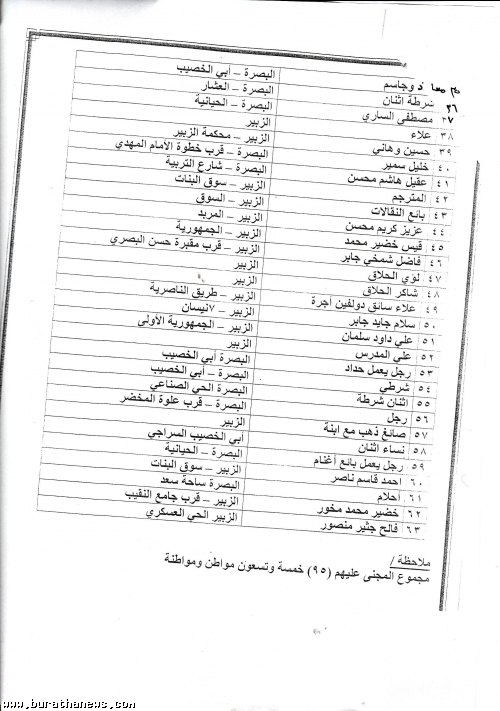 وجاسم البصرة – أبي الخصيب
٣٦ شرطة اثنان البصرة – العشار
٣٧ مصطفى الساري البصرة – الحيانية
٣٨ علاء الزبير
٣٩ حسين وهاني الزبير – محكمة الزبير
٤٠ خليل سمير البصرة – قرب خطوة الامام المهدي
٤١ عقيل هاشم محسن البصرة – شارع التربية
٤٢ المترجم الزبير – سوق البنات
٤٣ بائع النقالات الزبير – السوق
٤٤ عزيز كريم محسن الزبير – المربد
٤٥ قيس خضير محمد الزبير – الجمهورية
٤٦ فاضل شمخي جابر الزبير – قرب مقبرة حسن البصري
٤٧ لؤي الحلاق الزبير
٤٨ شاكر الحلاق الزبير
٤٩ علاء سائق دولفين أجرة الزبير – طريق الناصرية
٥٠ سلام جايد جابر الزبير – ٧نيسان
٥١ علي داود سلمان الزبير – الجمهورية الأولى
٥٢ علي المدرس الزبير
٥٣ رجل يعمل حداد البصرة أبي الخصيب
٥٤ شرطي البصرة – أبي الخصيب
٥٥ اثنان شرطة البصرة الحي الصناعي
٥٦ رجل البصرة – قرب علوة المخضر
٥٧ صائغ ذهب مع ابنة الزبير
٥٨ نساء اثنان أبي الخصيب السراجي
٥٩ رجل يعمل بائع أغنام البصرة – الحيانية
٦٠ احمد قاسم ناصر الزبير – سوق البنات
٦١ أحلام البصرة ساحة سعد
٦٢ خضير محمد مخور الزبير – قرب جامع النقيب
٦٣ فالح جثير منصور الزبير الحي العسكري
ملاحظة /
مجموع المجنى عليهم (٩٥) خمسة وتسعون مواطن ومواطنة
www.burathanews.com